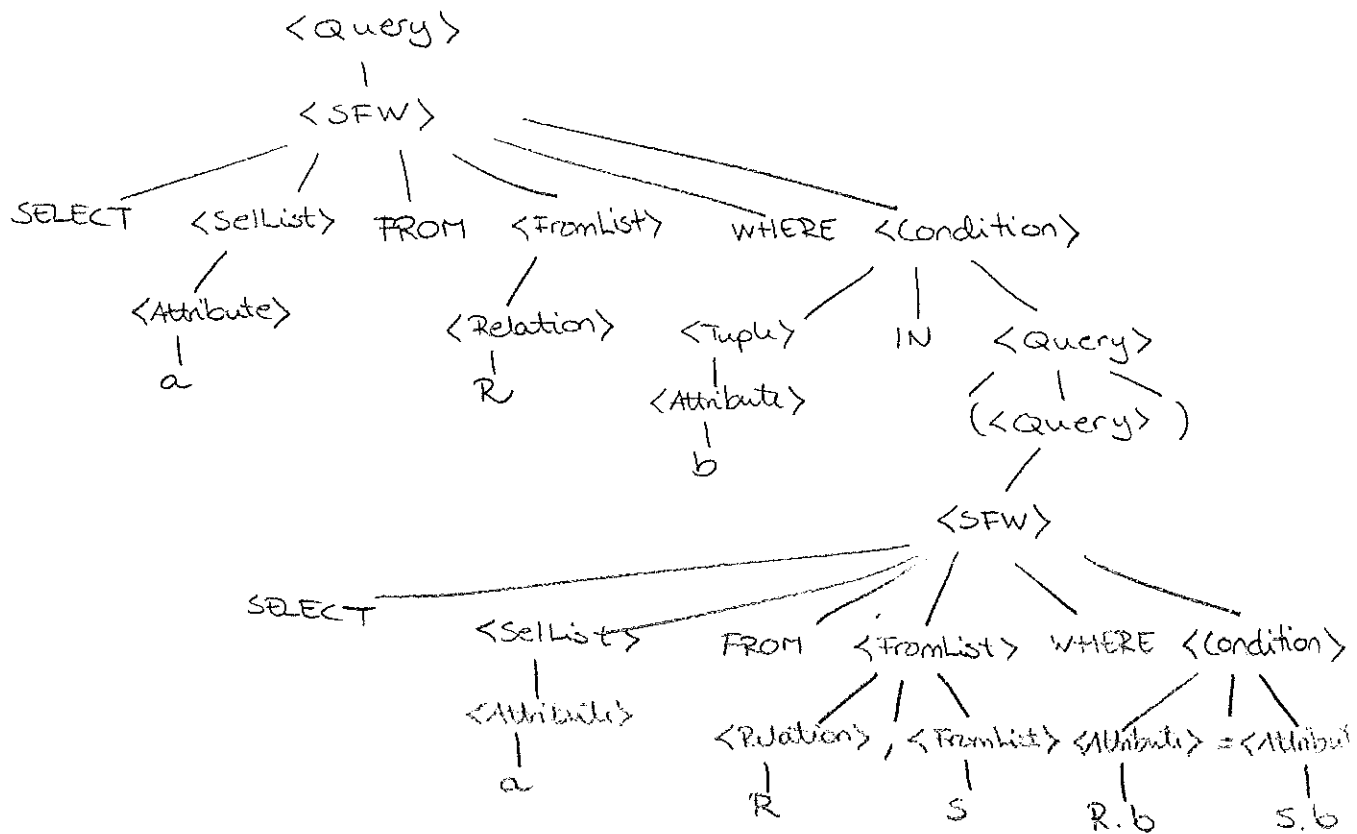 <Query>
<SFW>
SELECT <SelList> FROM <FromList> WHERE <Condition>
<Attribute> <Relation> <Tuple> IN <Query>
a R <Attribute> (<Query>)
b
<SFW>
SELECT <SelList> FROM <FromList> WHERE <Condition>
<Attribute> <Relation> , <FromList> <Attribute> = <Attribut
a R S R.b S.b